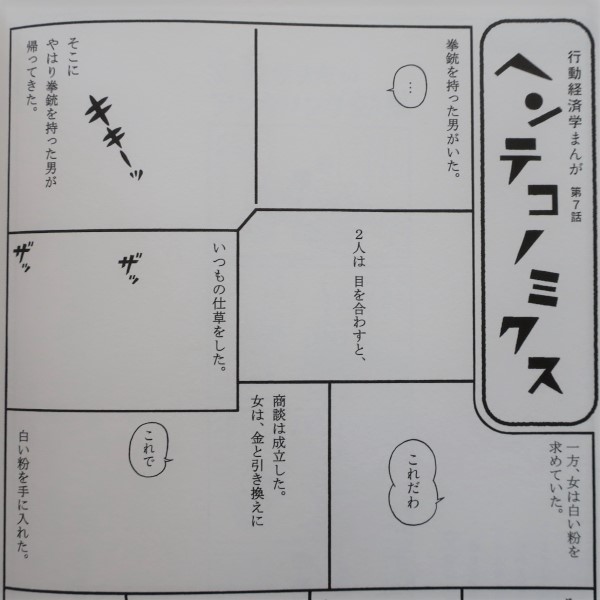 行動経済学まんが 第7話
ヘンテコノミクス
拳銃を持った男がいた。
…
そこに
やはり拳銃を持った男が
帰ってきた。
キキーッ
2人は 目を合わすと、
いつもの仕草をした。
ザッ
ザッ
一方、女は白い粉を
求めていた。
これだわ
商談は成立した。
女は、金と引き換えに
これで
白い粉を手に入れた。